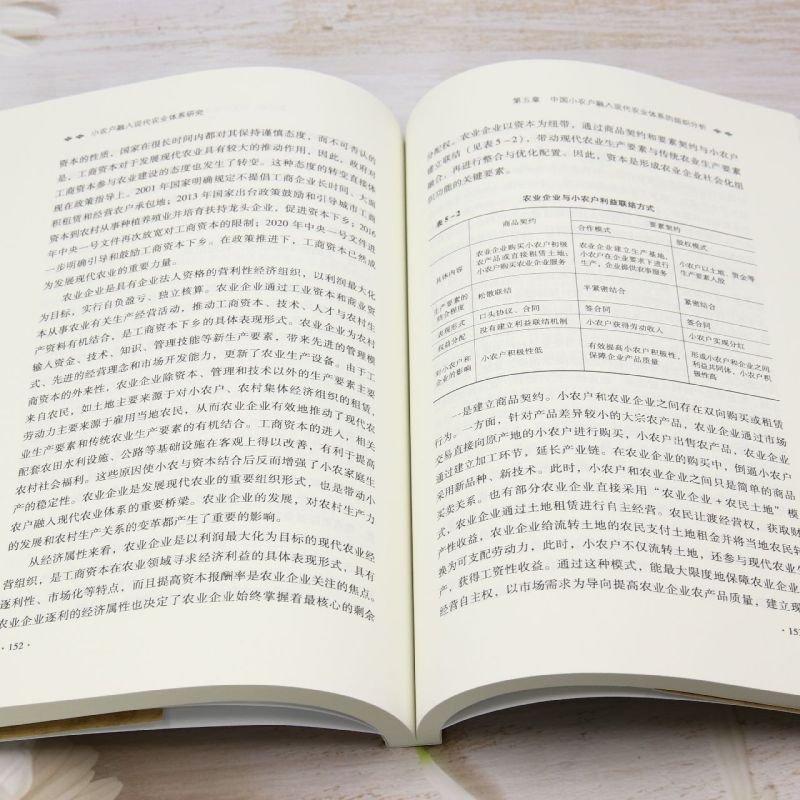 小农户融入现代农业体系研究
资本的性质，国家在很长时间内都对其保持谨慎态度，而不可否认的
是，工商资本对于发展现代农业具有较大的推动作用，因此，政府对
工商资本参与农业建设的态度也发生了转变。这种态度的转变直接体
现在政策指导上。2001 年国家明确规定不提倡工商企业长时间、大面
积租赁和经营农户承包地；2013 年国家出台政策鼓励和引导城市工商
资本到农村从事种植养殖业并培育扶持龙头企业，促进资本下乡；2016
年中央一号文件再次放宽对工商资本的限制；2020 年中央一号文件进
一步明确引导和鼓励工商资本下乡。在政策推进下，工商资本已然成
为发展现代农业的重要力量。
农业企业是具有企业法人资格的营利性经济组织，以利润最大化
为目标，实行自负盈亏、独立核算。农业企业通过工业资本和商业资
本从事农业有关生产经营活动，推动工商资本、技术、人才与农村生
产资料有机结合，是工商资本下乡的具体表现形式。农业企业为农村
输入资金、技术、知识、管理技能等新生产要素，带来先进的管理模
式、先进的经营理念和市场开发能力，更新了农业生产设备。由于工
商资本的外来性，农业企业除资本、管理和技术以外的生产要素主要
来自农民，如土地主要来源于对小农户、农村集体经济组织的租赁，
劳动力主要来源于雇用当地农民，从而农业企业有效地推动了现代农
业生产要素和传统农业生产要素的有机结合。工商资本的进入，相关
配套农田水利设施、公路等基础设施在客观上得以改善，有利于提高
农村社会福利。这些原因使小农与资本结合后反而增强了小农家庭生
产的稳定性。农业企业是发展现代农业的重要组织形式，也是带动小
农户融入现代农业体系的重要桥梁。农业企业的发展，对农村生产力
的发展和农村生产关系的变革都产生了重要的影响。
从经济属性来看，农业企业是以利润最大化为目标的现代农业经
营组织，是工商资本在农业领域寻求经济利益的具体表现形式，具有
逐利性、市场化等特点，而且提高资本报酬率是农业企业关注的焦点。
农业企业逐利的经济属性也决定了农业企业始终掌握着最核心的剩余
· 152 ·
第五章 中国小农户融入现代农业体系的组织分析
分配权。农业企业以资本为纽带，通过商品契约和要素契约与小农户
建立联结（见表 5-2），带动现代农业生产要素与传统农业生产要素
融合，再进行整合与优化配置。因此，资本是形成农业企业社会化组
织功能的关键要素。
表 5-2 农业企业与小农户利益联结方式
商品契约 要素契约
合作模式 股权模式
具体内容 农业企业购买小农户初级农产品或直接租赁土地；小农户购买农业企业服务 农业企业建立生产基地，小农户在企业要求下进行生产，企业提供农事服务 小农户以土地、资金等生产要素入股
生产要素的结合程度 松散联结 半紧密结合 紧密结合
表现形式 口头协议、合同 签合同 签合同
权益分配 没有建立利益联结机制 小农户获得劳动收入 小农户实现分红
对小农户和企业的影响 小农户积极性低 有效提高小农户积极性，保障企业产品质量 形成小农户和企业之间利益共同体，小农户积极性高
一是建立商品契约。小农户和农业企业之间存在双向购买或租赁
行为。一方面，针对产品差异较小的大宗农产品，农业企业通过市场
交易直接向原产地的小农户进行购买，小农户出售农产品，农业企业
通过建立加工环节，延长产业链。在农业企业的购买中，倒逼小农户
采用新品种、新技术。此时，小农户和农业企业之间只是简单的商品
买卖关系。也有部分农业企业直接采用“农业企业+农民土地”模
式，农业企业通过土地租赁进行自主经营。农民让渡经营权，获取财
产性收益，农业企业给流转土地的农民支付土地租金并将当地农民转
换为可支配劳动力，此时，小农户不仅流转土地，还参与现代农业生
产，获得工资性收益。通过这种模式，能最大限度地保障农业企业
经营自主权，以市场需求为导向提高农业企业农产品质量，建立现
· 153